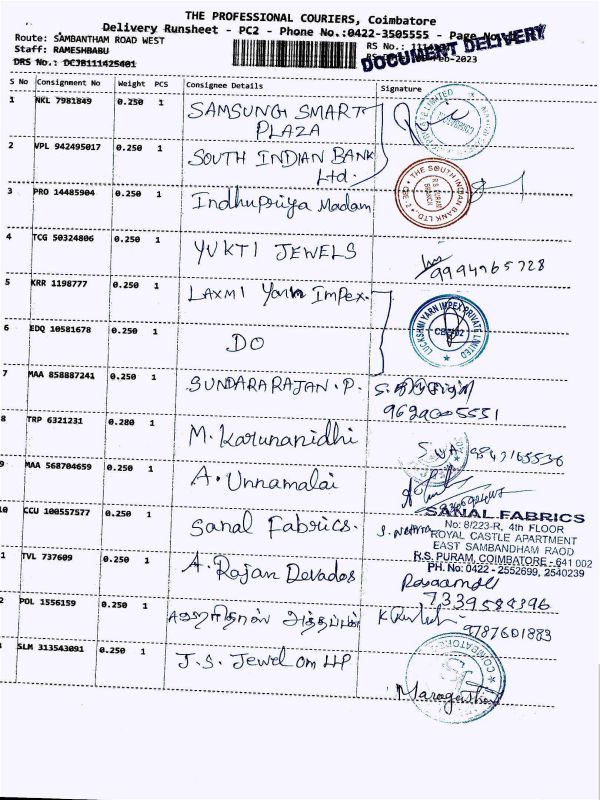 THE PROFESSIONAL COURIERS, Coimbatore
Delivery Runsheet - PC2 - Phone No.:0422-3505555 - Page No.
Route: SAMBANTHAM ROAD WEST
Staff: RAMESHBABU
DRS No.: DCJB111425401
RS No.:
DOCUMENT DELIVERY
Feb-2023
S No Consignment No Weight PCS Consignee Details Signature
1 NKL 7981849 0.250 1 SAMSUNG SMART
PLAZA
2 VPL 942495017 0.250 1 SOUTH INDIAN BANK
Ltd.
THE SOUTH INDIAN BANK LTD.
R.S. PURAM
BRANCH
3 PRO 14485904 0.250 1 Indhupriya Madam
4 TCG 50324806 0.250 1 YUKTI JEWELS
9994965728
5 KRR 1198777 0.250 1 LAXMI Yarn Impex.
LUCKSHMI YARN IMPEX PRIVATE LIMITED
6 EDQ 10581678 0.250 1 DO
7 MAA 858887241 0.250 1 SUNDARARAJAN.P.
9629005551
8 TRP 6321231 0.280 1 M. Karunanidhi
9847165536
9 MAA 568704659 0.250 1 A. Unnamalai
10 CCU 100557577 0.250 1 Sanal Fabrics.
SANAL FABRICS
No: 8/223-R, 4th FLOOR
ROYAL CASTLE APARTMENT
EAST SAMBANDHAM RAOD
R.S. PURAM, COIMBATORE - 641 002
PH. No: 0422 - 2552699, 2540239
1 TVL 737609 0.250 1 A. Rajan Devados
7339584396
2 POL 1556159 0.250 1
9787601883
SLM 313543091 0.250 1 J.S. Jewel om LLP
COIMBATORE